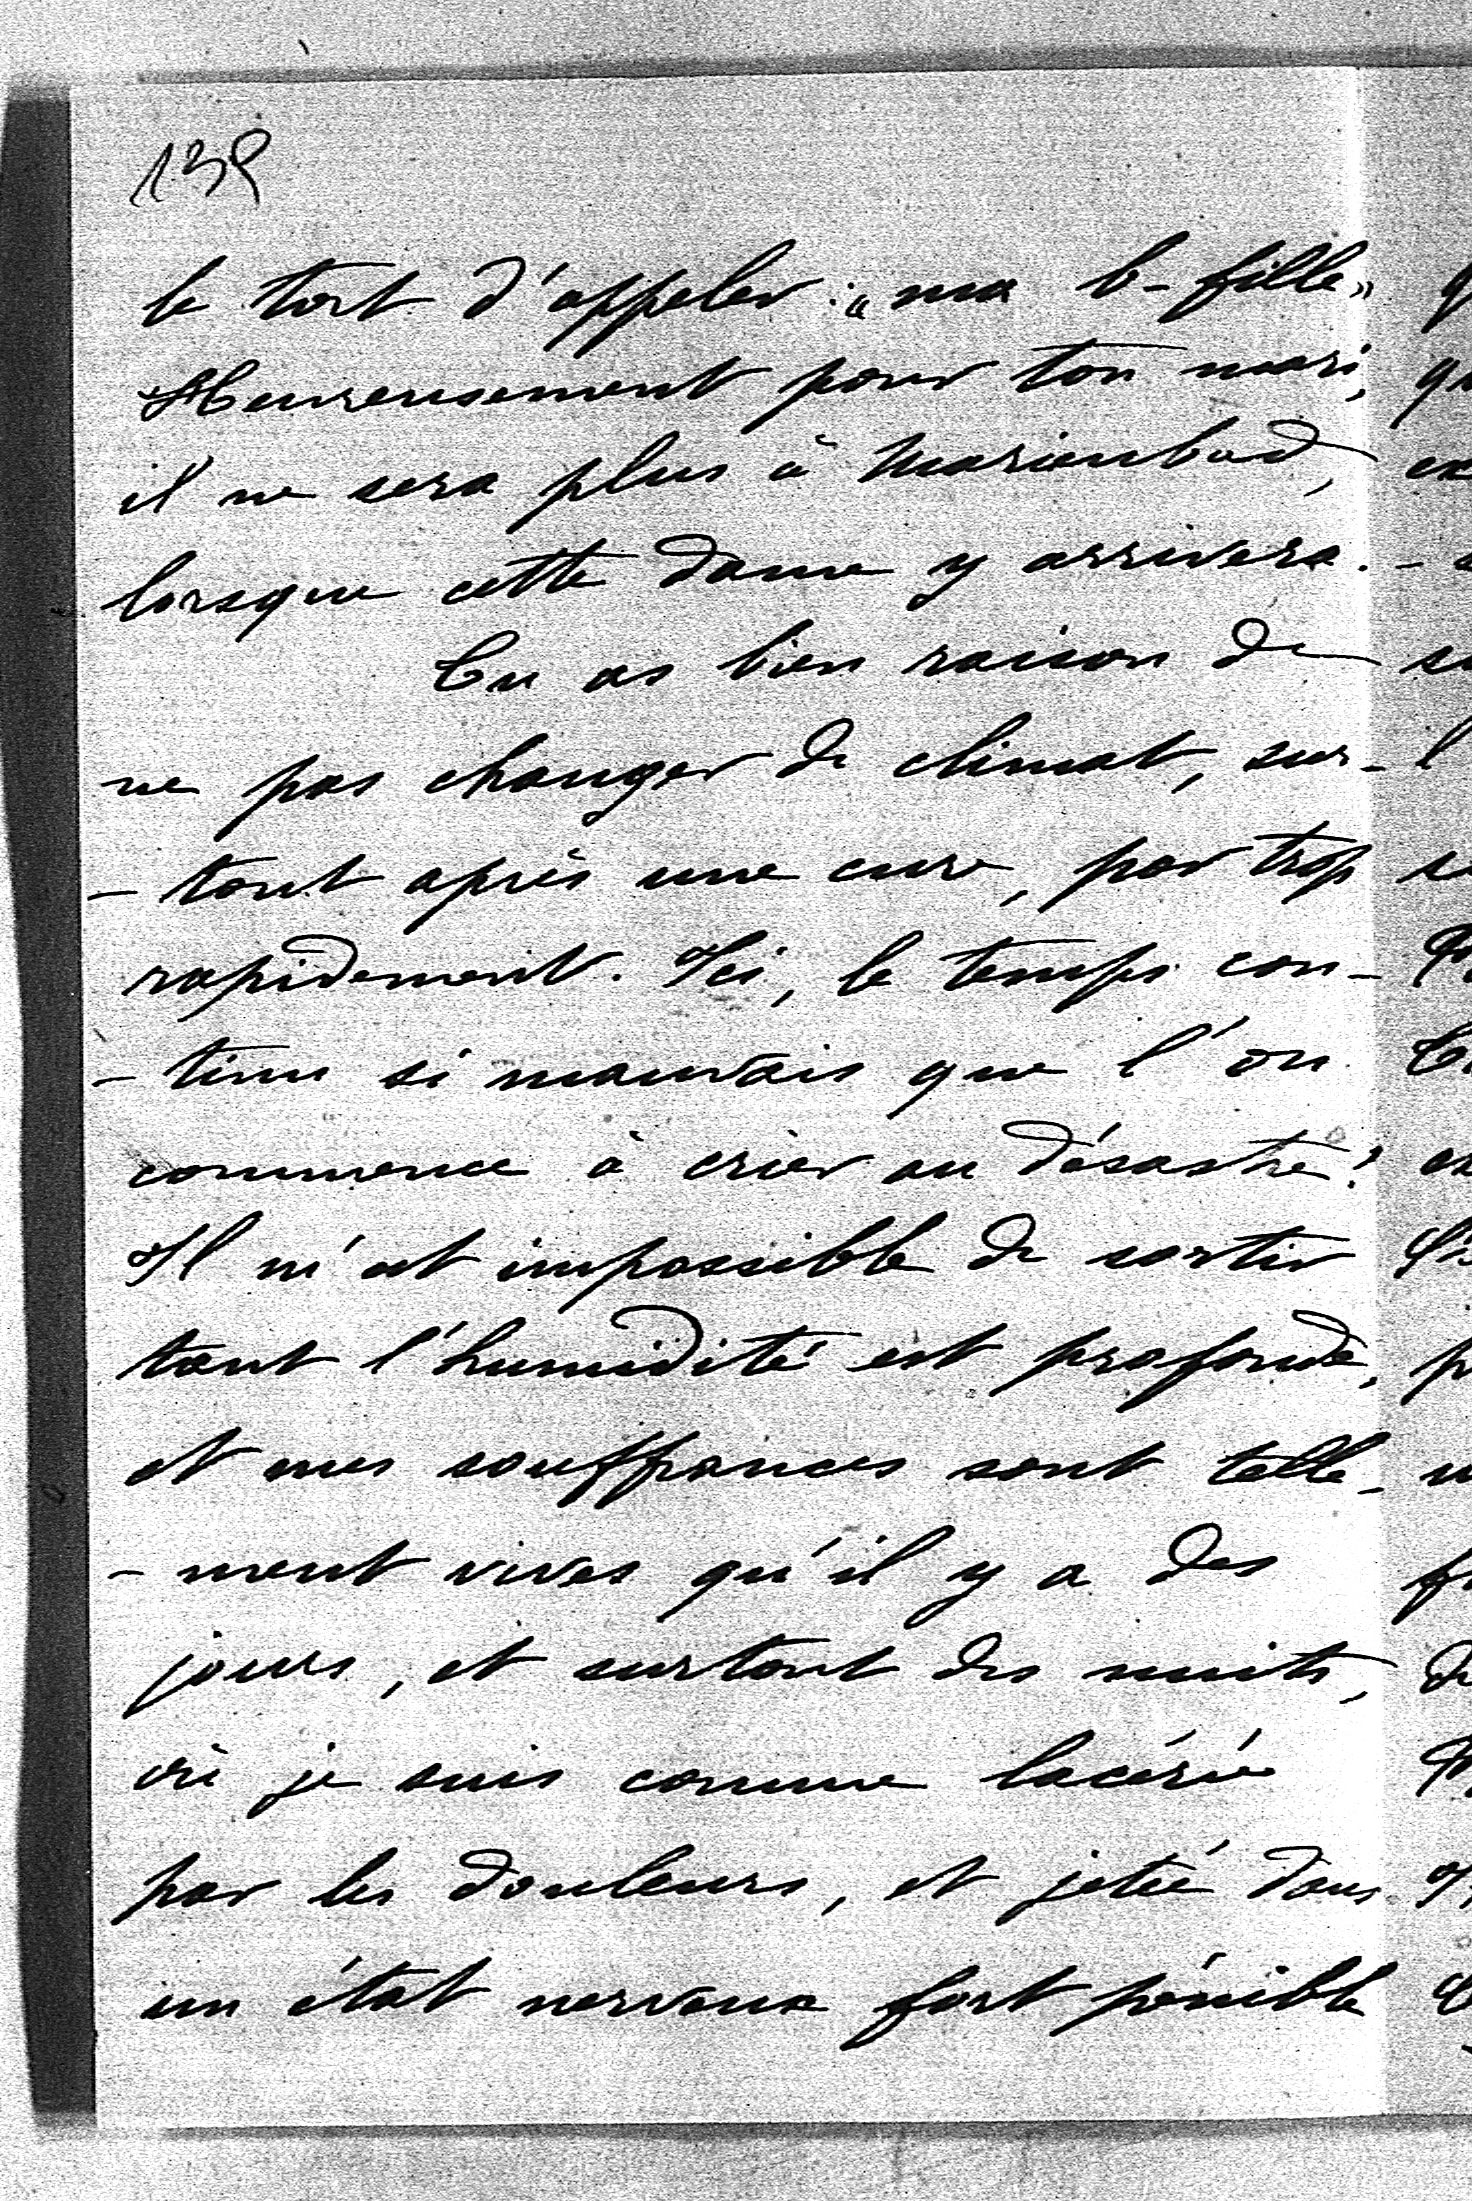 139
le tort d'appeler : « ma b-fille »
Heureusement pour ton mari,
il ne sera plus à Marienbad,
lorsque cette dame y arrivera. -
Tu as bien raison de
ne pas changer de climat, sur-
- tout après une cure, par trop
rapidement. Ici, le temps con-
- tinu si mauvais que l'on
commence à crier au désastre!
Il m'est impossible de sortir
tant l'humidité est profonde,
et mes souffrances sont telle-
- ment vives qu'il y a des
jours, et surtout des nuits,
où je suis comme lacérée
par les douleurs, et jetée dans
un état nerveux fort pénible